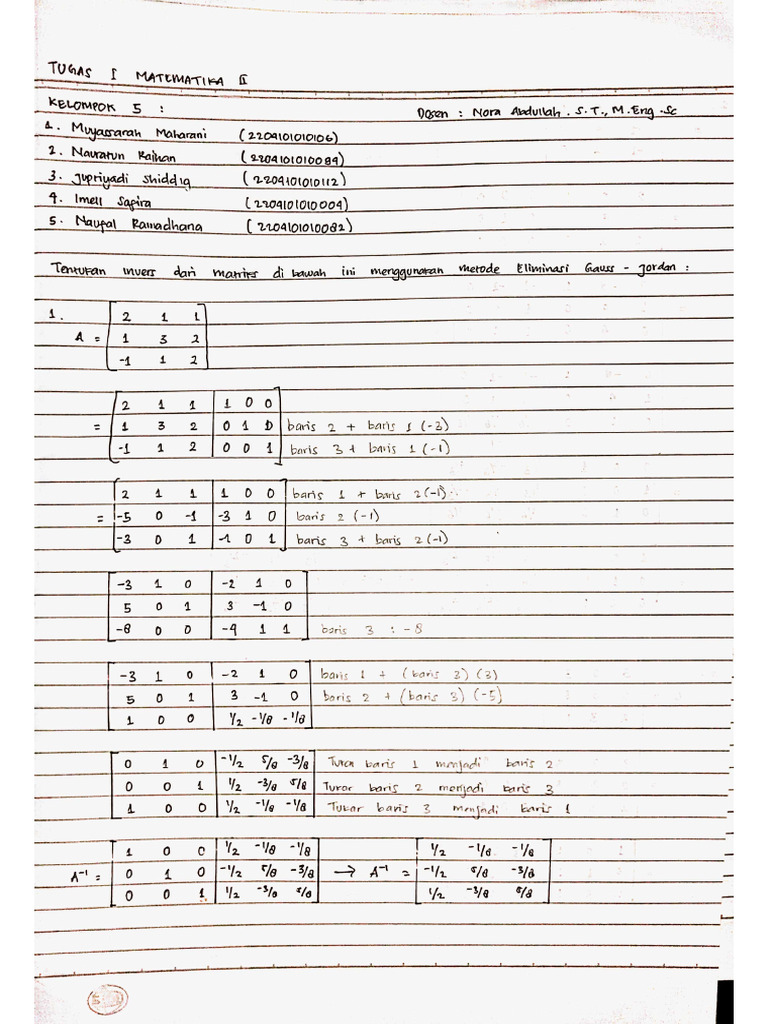 TUGAS I MATEMATIKA II
KELOMPOK 5 :
Dosen : Nora Abdullah . S.T., M.Eng .Sc
1. Muyassarah Maharani (2204101010106)
2. Nauratun Raihan (2204101010089)
3. Jupriyadi Shiddiq (2204101010112)
4. Imell Sapira (2204101010004)
5. Naupal Ramadhana (2204101010082)
Tentukan invers dari matriks di bawah ini menggunakan metode Eliminasi Gauss - Jordan :
1.
2 1 1
A = 1 3 2
-1 1 2
2 1 1 1 0 0
= 1 3 2 0 1 0 baris 2 + baris 1 (-3)
-1 1 2 0 0 1 baris 3 + baris 1 (-1)
2 1 1 1 0 0 baris 1 + baris 2 (-1)
= -5 0 -1 -3 1 0 baris 2 (-1)
-3 0 1 -1 0 1 baris 3 + baris 2 (-1)
-3 1 0 -2 1 0
5 0 1 3 -1 0
-8 0 0 -4 1 1 baris 3 : -8
-3 1 0 -2 1 0 baris 1 + (baris 3) (3)
5 0 1 3 -1 0 baris 2 + (baris 3) (-5)
1 0 0 1/2 -1/8 -1/8
0 1 0 -1/2 5/8 -3/8 Tukar baris 1 menjadi baris 2
0 0 1 1/2 -3/8 5/8 Tukar baris 2 menjadi baris 3
1 0 0 1/2 -1/8 -1/8 Tukar baris 3 menjadi baris 1
1 0 0 1/2 -1/8 -1/8 1/2 -1/8 -1/8
A⁻¹ = 0 1 0 -1/2 5/8 -3/8 → A⁻¹ = -1/2 5/8 -3/8
0 0 1 1/2 -3/8 5/8 1/2 -3/8 5/8